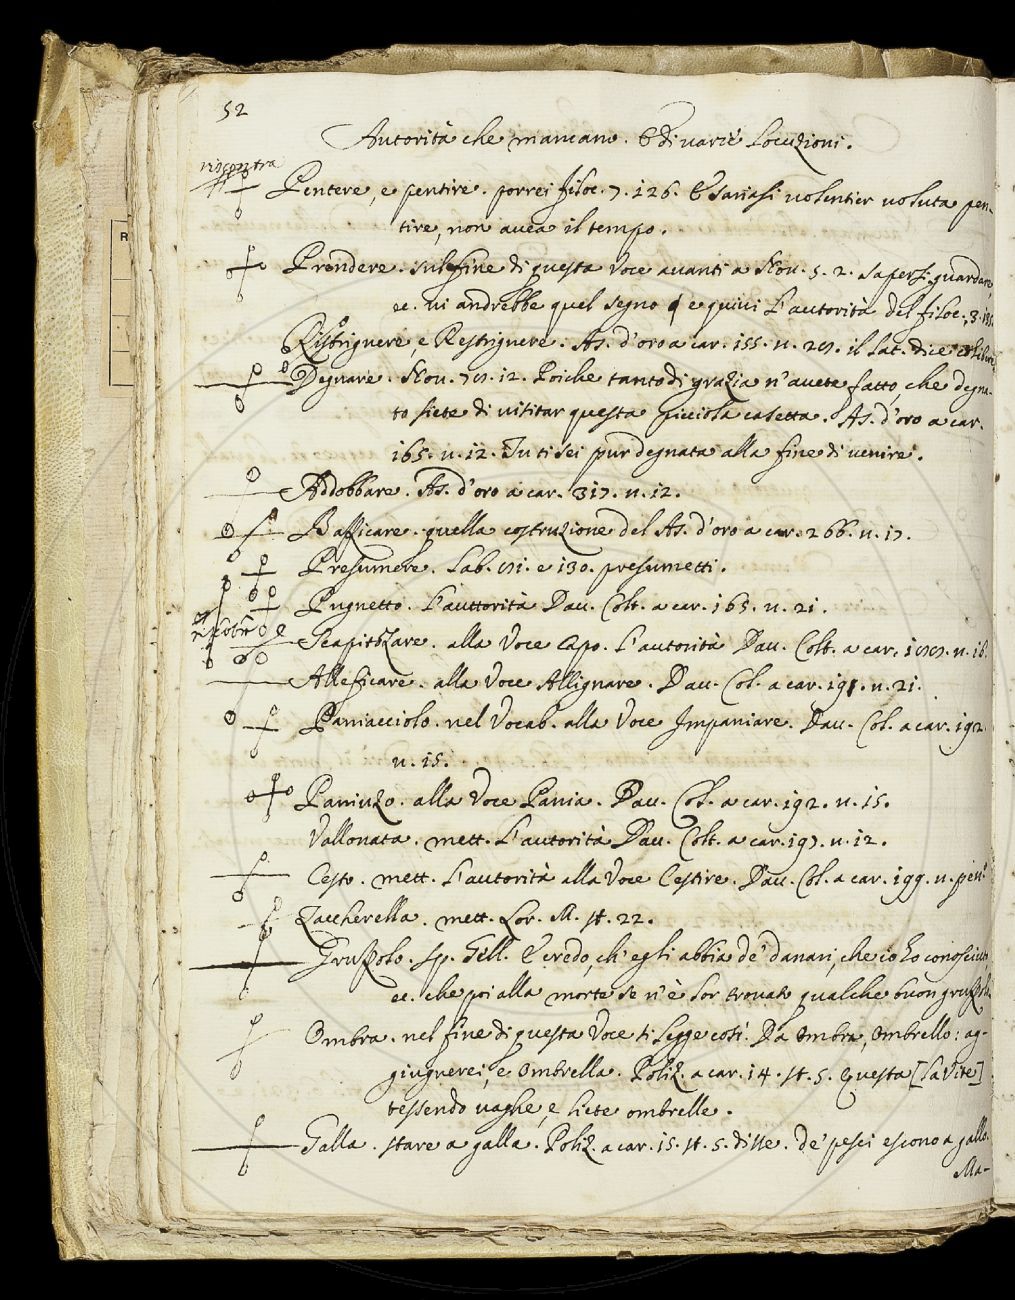 52
Autorità che mancano. E di varie Locuzioni.
riscontra
Pentere, e pentire. porrei filoc. 7. 126. E sariasi volentier voluta pen-
tire, non avea il tempo.
Prendere. sul fine di questa voce avanti a Nov. 5. 2. sapersi guardare,
ec. vi andrebbe quel segno ¶ e quivi l'autorità del filoc. 3.
Ristrignere, e Restrignere. As. d'oro a car. 155. n. 29. il Lat. dice
Degnare. Nov. 79. 12. Poiche tanto di grazia n'avete fatto, che degna-
to siete di visitar questa picciola casetta. As. d'oro a car.
165. n. 12. Tu ti sei pur degnata alla fine di venire.
Addobbare. As. d'oro a car. 317. n. 12.
quella costruzione del As. d'oro a car. 266. n. 17.
Presumere. Lab. 191. e 130. presumetti.
Pugnetto. L'auttorità Dav. Colt. a car. 165. n. 21.
Scapitozzare. alla Voce Capo. L'autorità Dav. Colt. a car. n. 16.
Alleficare. alla Voce Allignare. Dav. Col. a car. 191. n. 21.
Paniacciolo. nel Vocab. alla Voce Impaniare. Dav. Col. a car. 192.
n. 15.
Paniuzo. alla Voce Pania. Dav. Col. a car. 192. n. 15.
Vallonata. mett. L'autorità Dav. Colt. a car. 197. n. 12.
Cesto. mett. L'autorità alla Voce Cestire. Dav. Col. a car. 199. n. pen.
Zaccherella. mett. Lor. M. st. 22.
Gruzolo. sp. Gell. E credo, ch'egli abbia de' danari, che io ho conosciuto,
ec. che poi alla morte se n'è lor trovato qualche buon gruzolo.
Ombra. nel fine di questa Voce si legge così. Da Ombra, Ombrello: ag-
giugnerei, e Ombrella. Poliz. a car. 14. st. 5. Questa [la Vite]
tessendo vaghe, e liete ombrelle.
Galla. stare a galla. Poliz. a car. 15. st. 5. disse. de' pesci escono a gallo.
Ma-